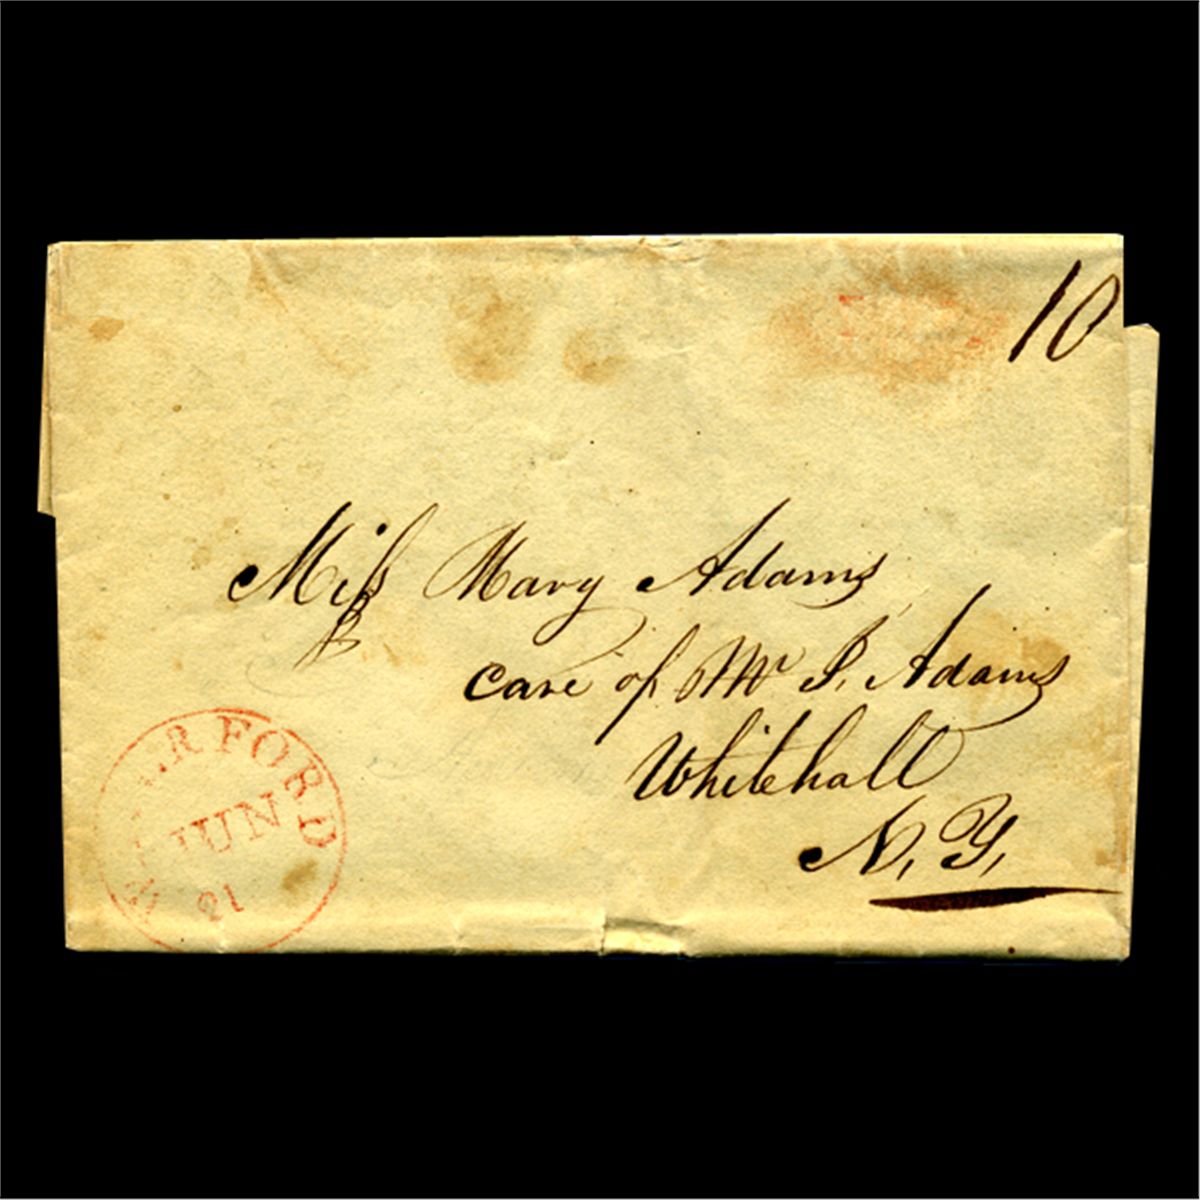 10
Miss Mary Adams
care of Mr I. Adams
Whitehall
N. Y.
JUN
21